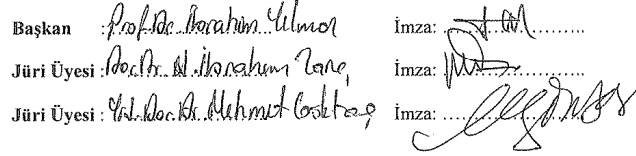 Başkan : Prof. Dr. İbrahim Yılmaz İmza: ........................
Jüri Üyesi : Doç. Dr. N. İbrahim İmza: ........................
Jüri Üyesi : Yrd. Doç. Dr. Mehmet İmza: ........................